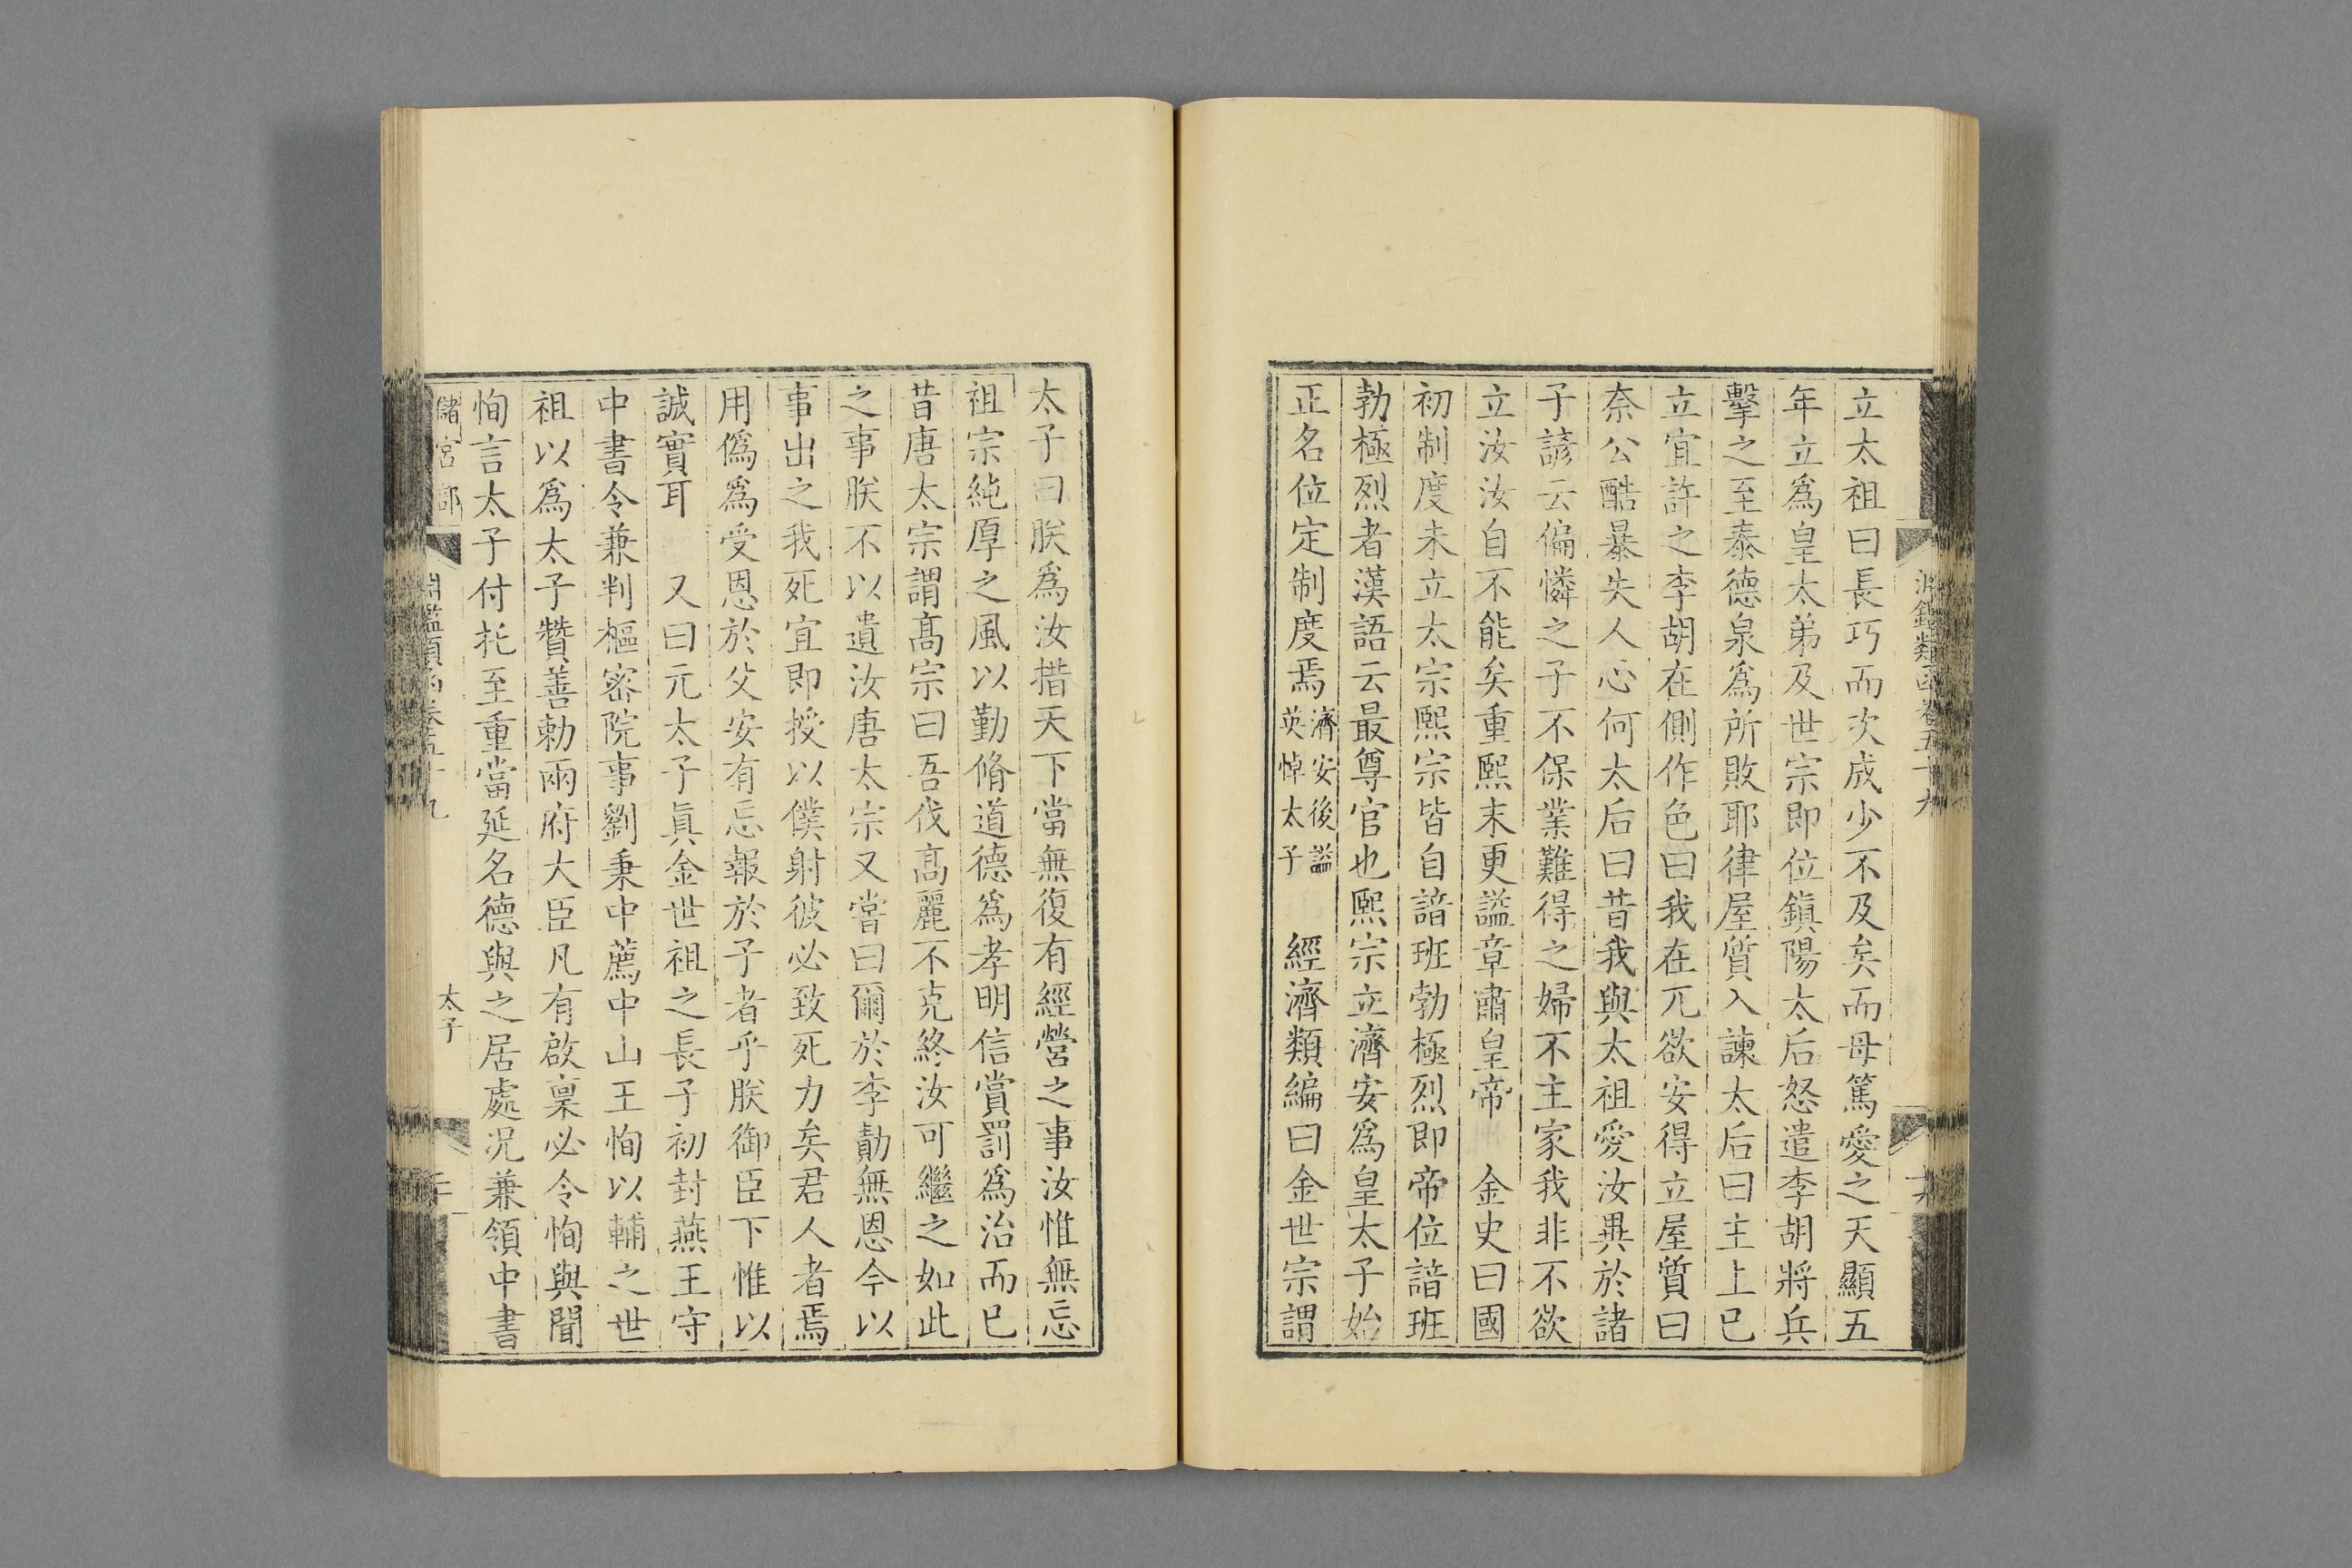 立太祖曰長巧而次成少不及矣而母篤愛之天顯五
年立為皇太弟及世宗即位鎮陽太后怒遣李胡將兵
擊之至泰德泉為所敗耶律屋質入諫太后曰主上已
立宜許之李胡在側作色曰我在兀欲安得立屋質曰
奈公酷暴失人心何太后曰昔我與太祖愛汝異於諸
子諺云偏憐之子不保業難得之婦不主家我非不欲
立汝汝自不能矣重熙末更諡章肅皇帝　金史曰國
初制度未立太宗熙宗皆自諳班勃極烈即帝位諳班
勃極烈者漢語云最尊官也熙宗立濟安為皇太子始
正名位定制度焉濟安後諡英悼太子　經濟類編曰金世宗謂
太子曰朕為汝措天下當無復有經營之事汝惟無忘
祖宗純厚之風以勤脩道德為孝明信賞罰為治而已
昔唐太宗謂髙宗曰吾伐髙麗不克終汝可繼之如此
之事朕不以遺汝唐太宗又嘗曰爾於李勣無恩今以
事出之我死宜即授以僕射彼必致死力矣君人者焉
用偽為受恩於父安有忘報於子者乎朕御臣下惟以
誠實耳　又曰元太子眞金世祖之長子初封燕王守
中書令兼判樞密院事劉秉中薦中山王恂以輔之世
祖以為太子贊善勅兩府大臣凡有啟稟必令恂與聞
恂言太子付托至重當延名德與之居處况兼領中書
儲宮部
太子